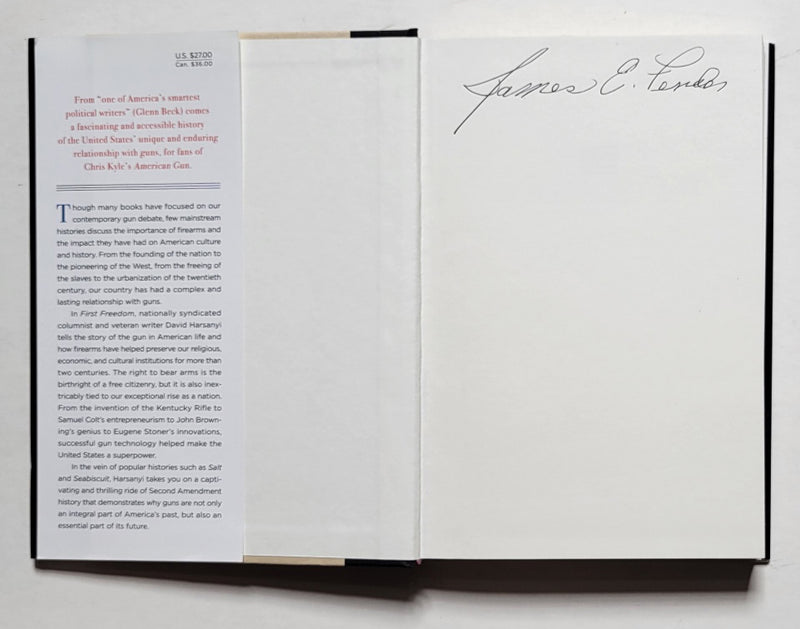 U.S. $27.00
Can. $36.00
From "one of America's smartest
political writers" (Glenn Beck) comes
a fascinating and accessible history
of the United States' unique and enduring
relationship with guns, for fans of
Chris Kyle's American Gun.
Though many books have focused on our
contemporary gun debate, few mainstream
histories discuss the importance of firearms and
the impact they have had on American culture
and history. From the founding of the nation to
the pioneering of the West, from the freeing of
the slaves to the urbanization of the twentieth
century, our country has had a complex and
lasting relationship with guns.
In First Freedom, nationally syndicated
columnist and veteran writer David Harsanyi
tells the story of the gun in American life and
how firearms have helped preserve our religious,
economic, and cultural institutions for more than
two centuries. The right to bear arms is the
birthright of a free citizenry, but it is also inex-
tricably tied to our exceptional rise as a nation.
From the invention of the Kentucky Rifle to
Samuel Colt's entrepreneurism to John Brown-
ing's genius to Eugene Stoner's innovations,
successful gun technology helped make the
United States a superpower.
In the vein of popular histories such as Salt
and Seabiscuit, Harsanyi takes you on a capti-
vating and thrilling ride of Second Amendment
history that demonstrates why guns are not only
an integral part of America's past, but also an
essential part of its future.
James E.